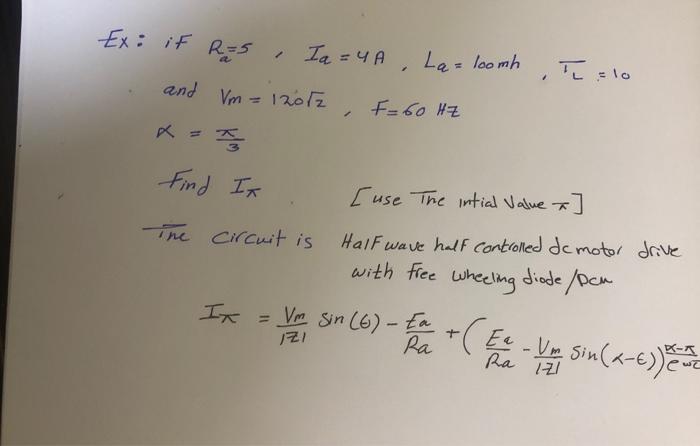 Ex: if Ra=5 , Ia = 4A , La = 100mh , TL = 10
and Vm = 120√2 , F=60 HZ
α = π/3
Find Iπ [use The intial Value π]
The circuit is Half wave half controlled dc motor drive
with free wheeling diode /DCM
Iπ = Vm/|Z| sin(ϵ) - Ea/Ra + (Ea/Ra - Vm/|Z| sin(α-ϵ)) e^(α-π/ωτ)